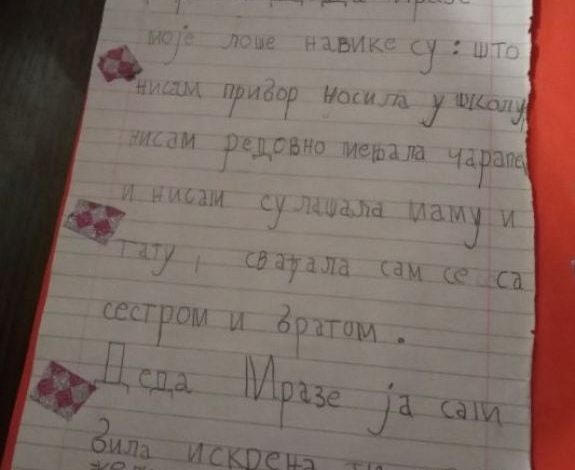 Мразе
моје лоше навике су: што
нисам прибор носила у школу,
нисам редовно мењала чарапе,
и нисам сулашала маму и
тату, свађала сам се са
сестром и братом.
Деда Мразе ја сам
била искрена